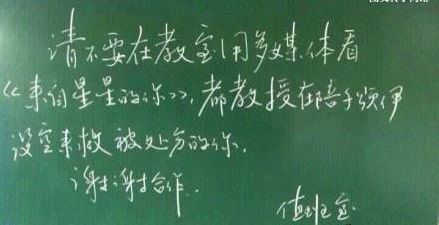 请不要在教室用多媒体看
《来自星星的你》,都教授在陪千颂伊
没空来救被处分的你.
谢谢合作.
值班室